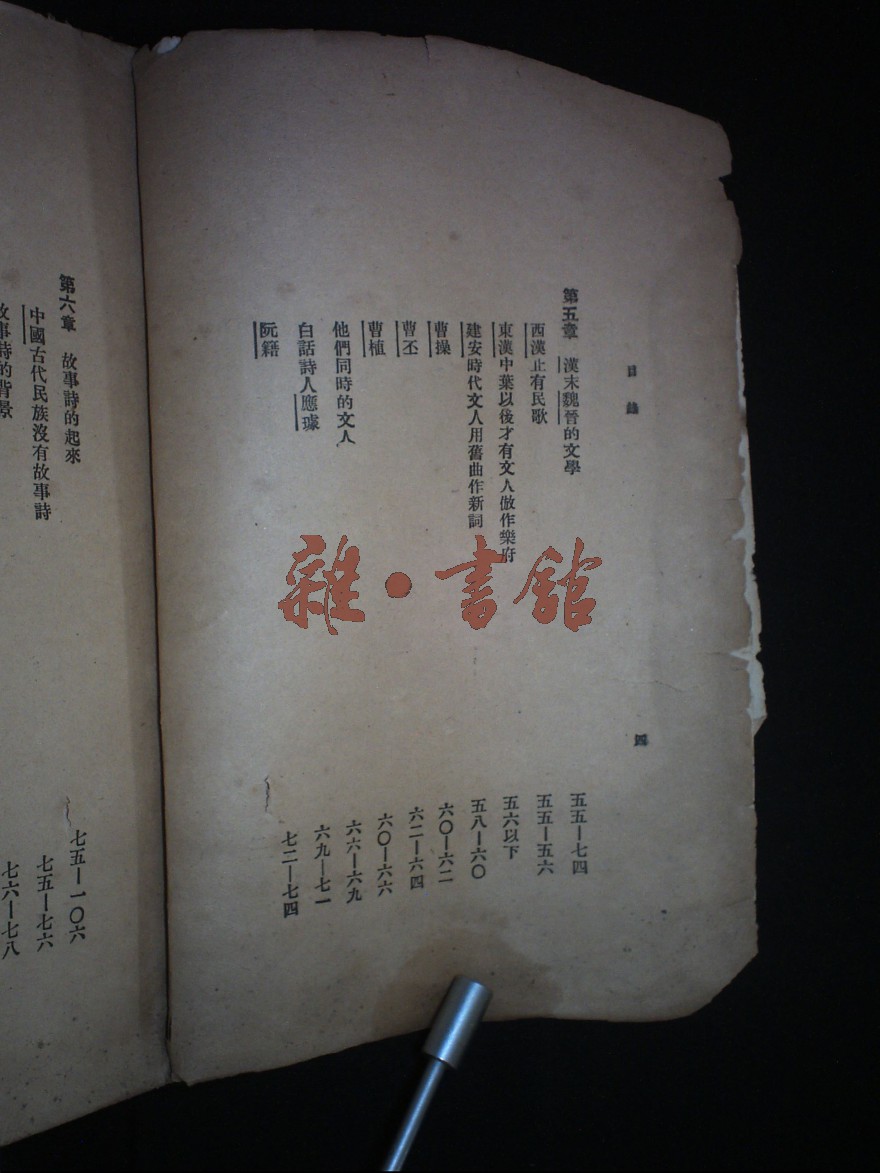 目錄 四
第五章 漢末魏晉的文學 五五—七四
西漢止有民歌 五五—五六
東漢中葉以後才有文人倣作樂府 五六以下
建安時代文人用舊曲作新詞 五八—六〇
曹操 六〇—六二
曹丕 六二—六四
曹植 六〇—六六
他們同時的文人 六六—六九
白話詩人應璩 六九—七一
阮籍 七二—七四
第六章 故事詩的起來 七五—一〇六
中國古代民族沒有故事詩 七五—七六
故事詩的背景 七六—七八
雜·書館